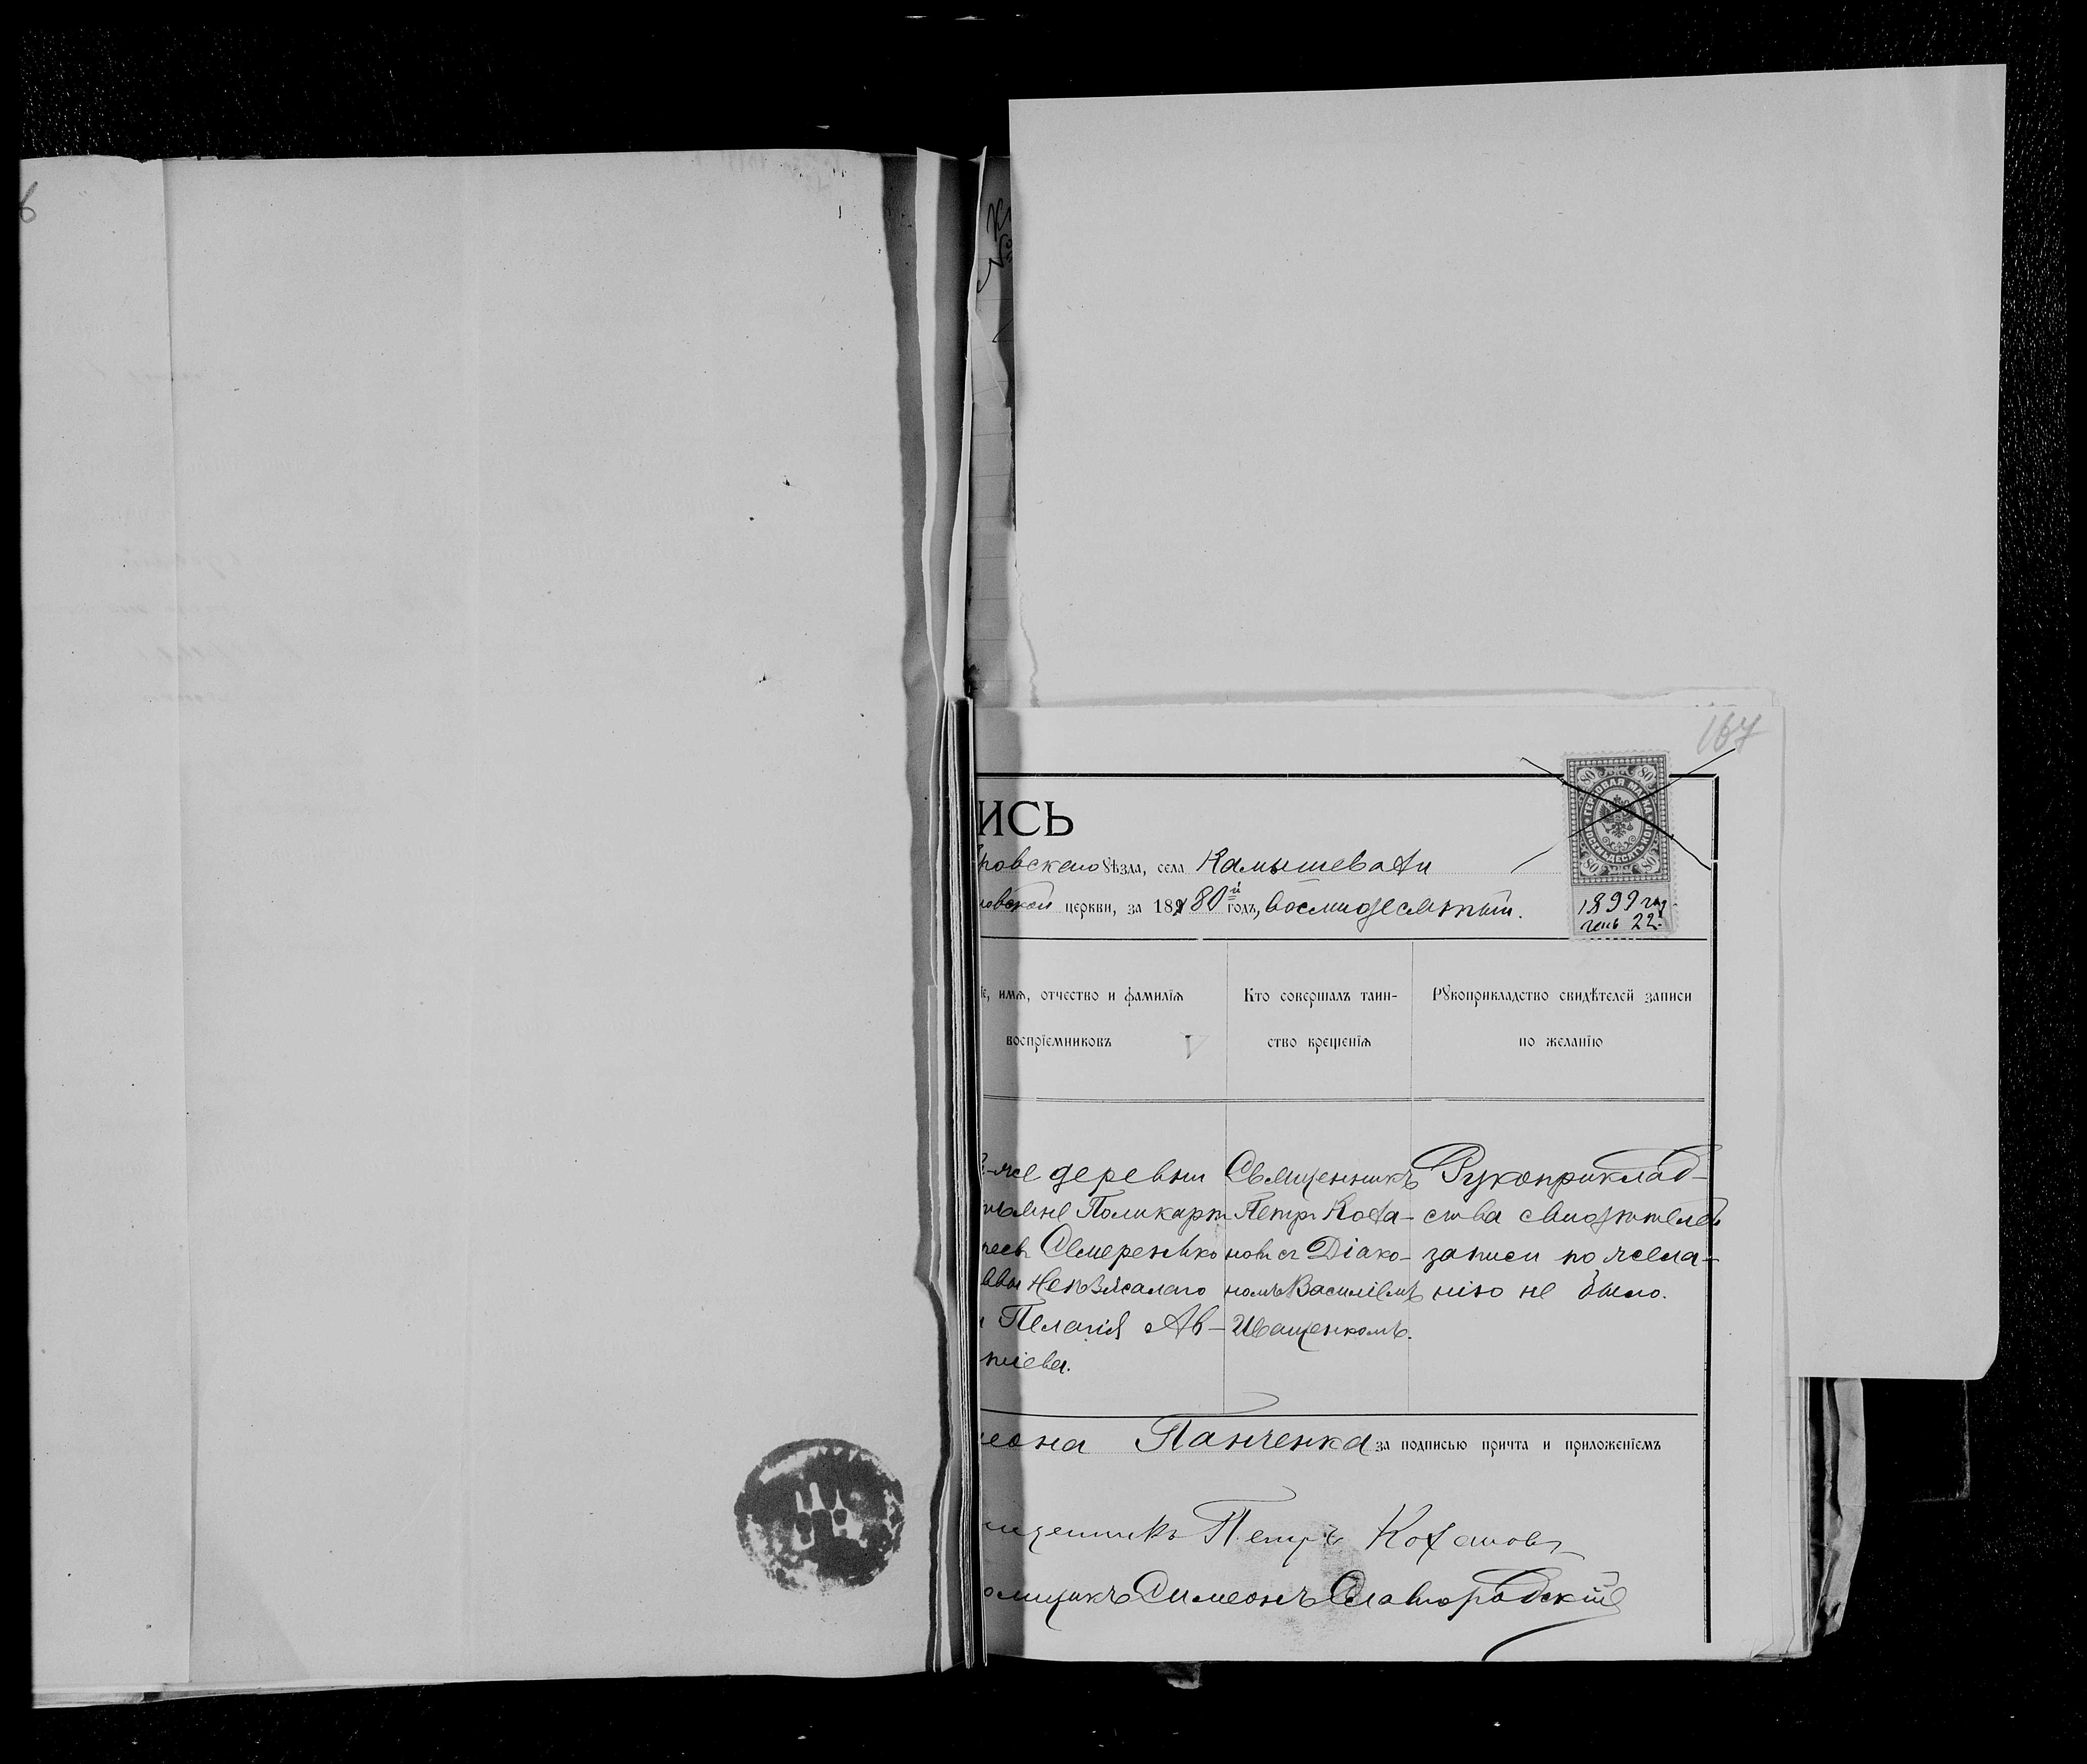 167
ИСЬ
ровскаго Уѣзда, села Камышевахи
новской церкви, за 1880й годъ, восмидесятый.
80 80
ГЕРБОВАЯ МАРКА
ВОСЕМЬДЕСЯТЪ КОП.
80 80
1899 год
22
іе, имя, отчество и фамилія
воспріемниковъ
Кто совершалъ таин-
ство крещенія
Рукоприкладство свидѣтелей записи
по желанію
-же деревни
Поликарп
Семеренько
Непъйжалаго
Пелагія Ав-
тіева.
Священникъ
Петръ Коха-
новъ съ Діако-
номъ Василіемъ
Иващенкомъ.
Рукоприклад-
ства свидѣтелей
записи по жела-
нію не было.
еона Панченка за подписью причта и приложеніемъ
щенникъ Петръ Кохановъ
омщикъ Симеонъ Славгородскій